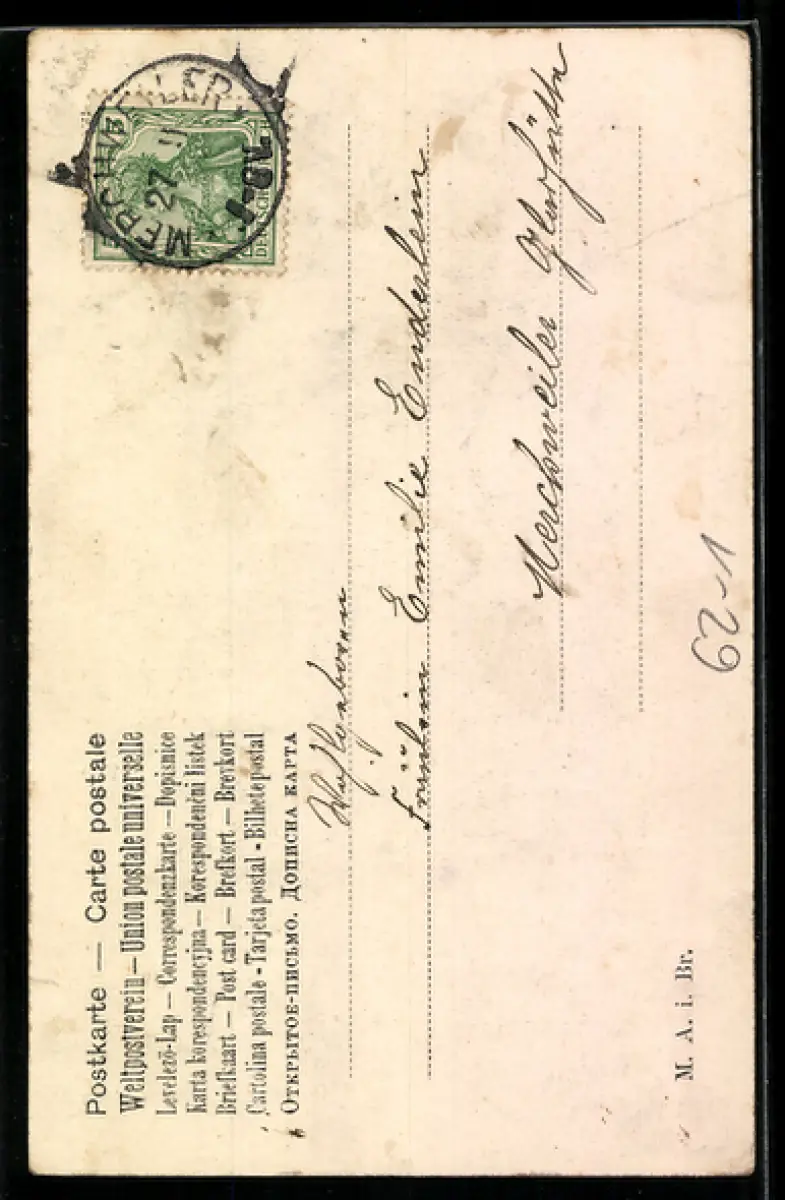 Postkarte — Carte postale
Weltpostverein — Union postale universelle
Levelező-Lap — Correspondenzkarte — Dopisnice
Karta korespondencyjna — Korespondenční lístek
Briefkaart — Post card — Brefkort — Brevkort
Cartolina postale - Tarjeta postal - Bilhete postal
Открытое-письмо. Дописна карта
27
5
Wohlgeboren
Fräulein Emilie Enderlein
Merchweiler Glashütte
62-1
M. A. i. Br.